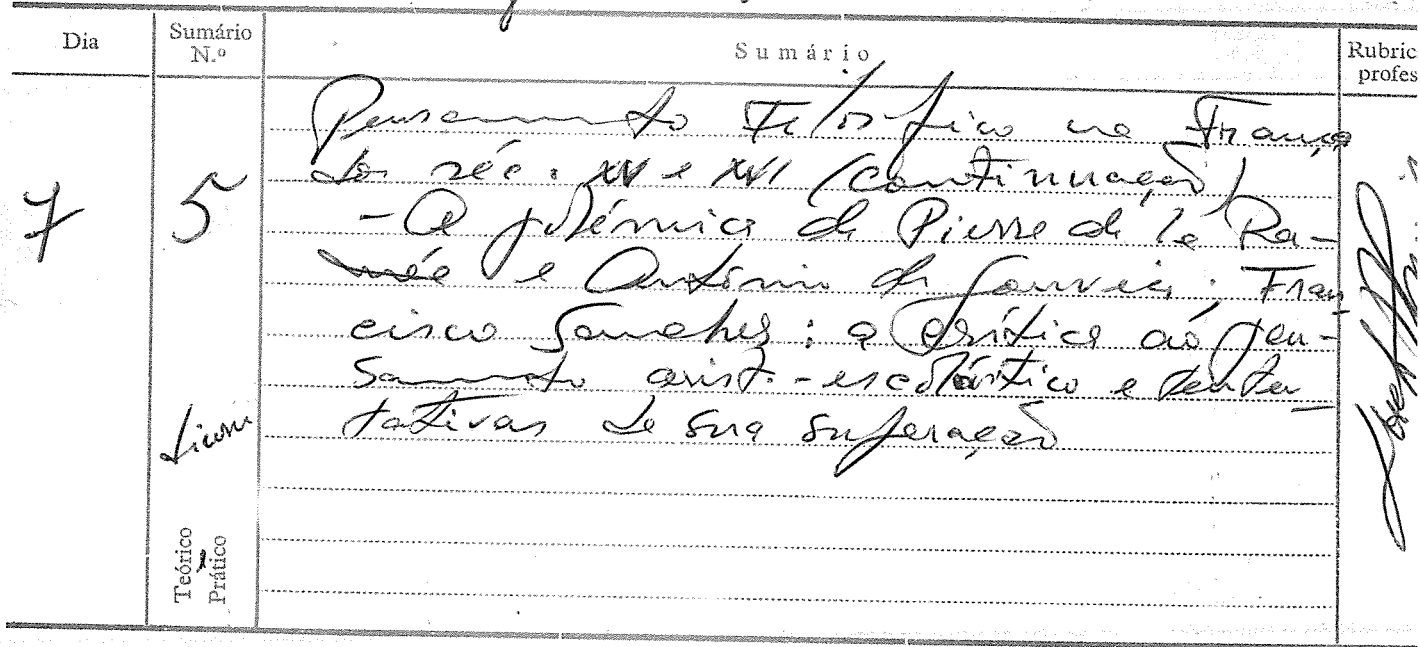 Dia
Sumário N.º
Sumário
Rubric
profes
7
5
Pensamento Filosófico na França
dos séc. XV e XVI (continuação)
- A polémica de Pierre de la Ra-
mée e António de Gouveia; Fran
cisco Sanches: a crítica ao pen-
samento arist.-escolástico e tenta-
tativas de sua superação
Teórico
e
Prático